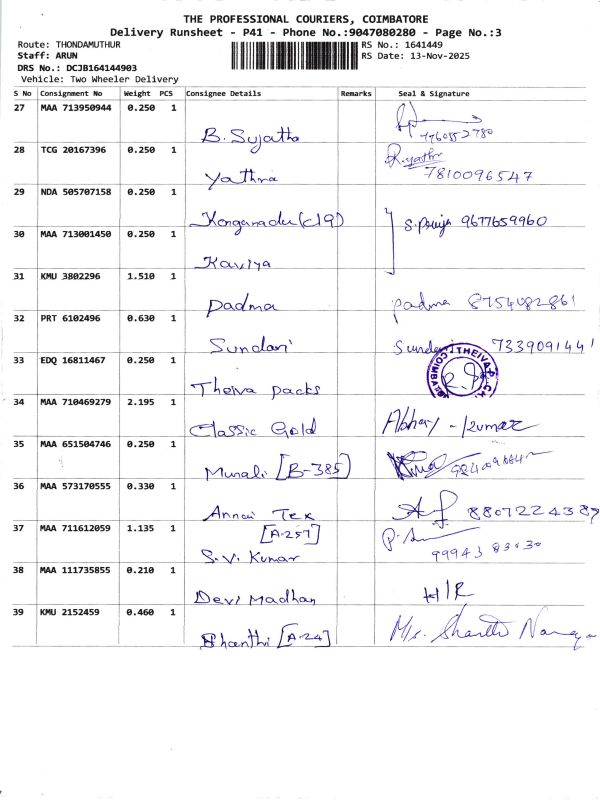 THE PROFESSIONAL COURIERS, COIMBATORE
Delivery Runsheet - P41 - Phone No.:9047080280 - Page No.:3
Route: THONDAMUTHUR RS No.: 1641449
Staff: ARUN RS Date: 13-Nov-2025
DRS No.: DCJB164144903
Vehicle: Two Wheeler Delivery
S No Consignment No Weight PCS Consignee Details Remarks Seal & Signature
27 MAA 713950944 0.250 1
B. Sujatha 7760852780
28 TCG 20167396 0.250 1 R.yathra
Yathra 7810096547
29 NDA 505707158 0.250 1
Konganadu (C19) S.Priya 9677659960
30 MAA 713001450 0.250 1
Kaviya
31 KMU 3802296 1.510 1
Padma Padma 8754082861
32 PRT 6102496 0.630 1
Sundari Sundari 7339091441
33 EDQ 16811467 0.250 1 THEIVA
Theiva packs
34 MAA 710469279 2.195 1
Classic Gold Abhay - Kumar
35 MAA 651504746 0.250 1
Murali [B-385]
36 MAA 573170555 0.330 1
Annai Tex 8807224389
37 MAA 711612059 1.135 1 [A-257]
S.V. Kumar 99943 83030
38 MAA 111735855 0.210 1
Devi Madhan H/R
39 KMU 2152459 0.460 1
Shanthi [A-24] M/s. Shanthi